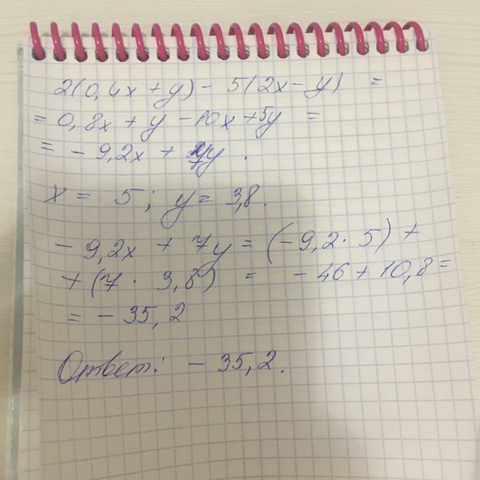 2(0,4x+y) - 5(2x-y) =
= 0,8x + y - 10x + 5y =
= - 9,2x + 7y .
x = 5 ; y = 3,8.
- 9,2x + 7y = (-9,2 · 5) +
+ (7 · 3,8) = - 46 + 10,8 =
= - 35,2
Ответ: - 35,2.